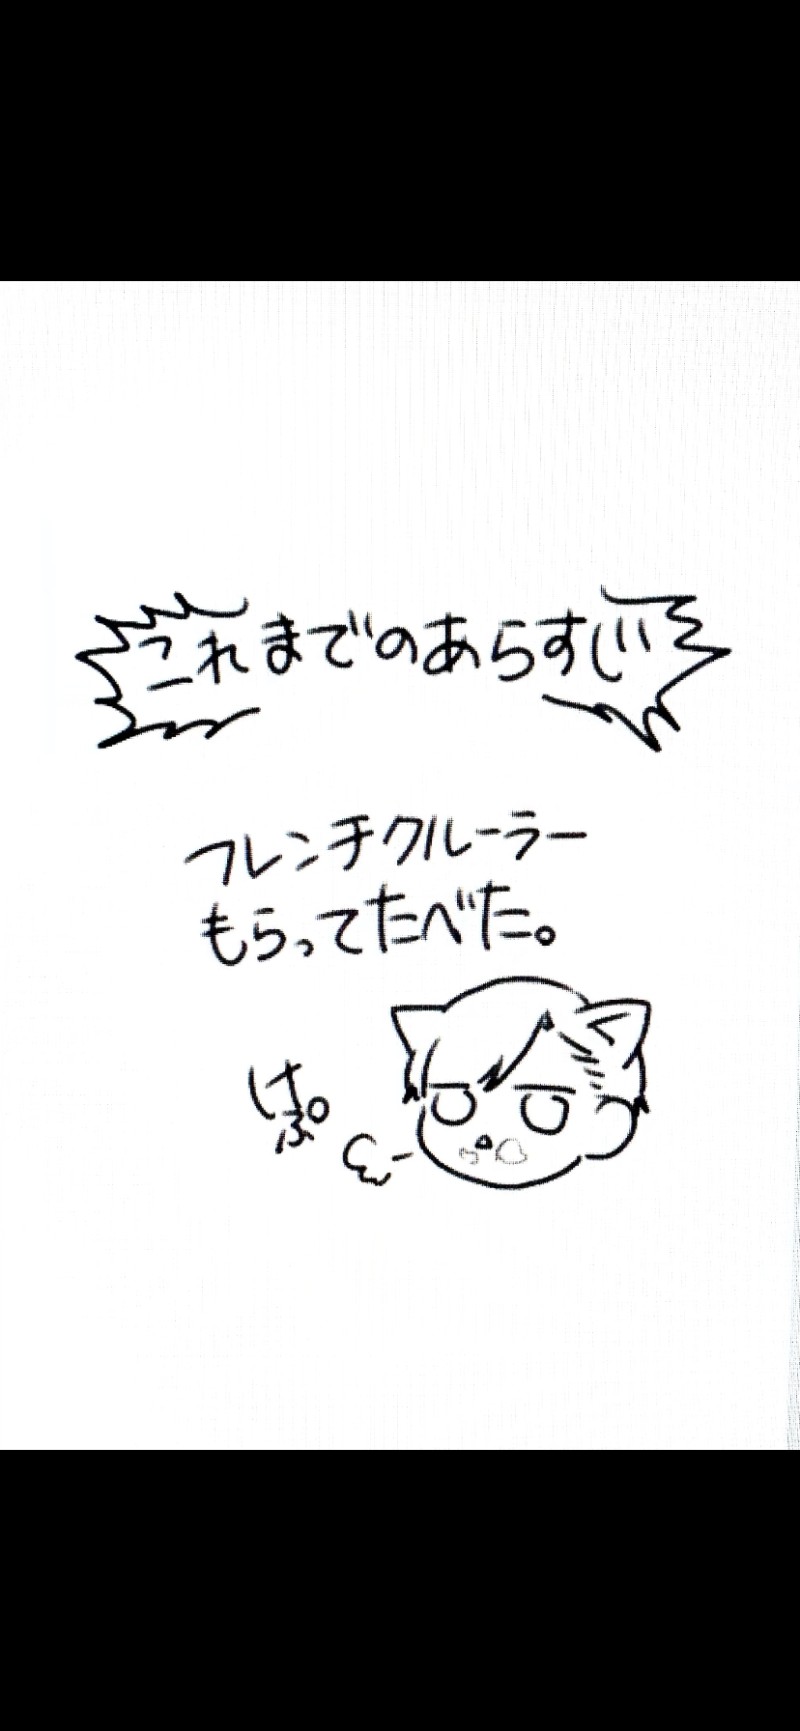 これまでのあらすじ
フレンチクルーラー
もらってたべた。
けぷ